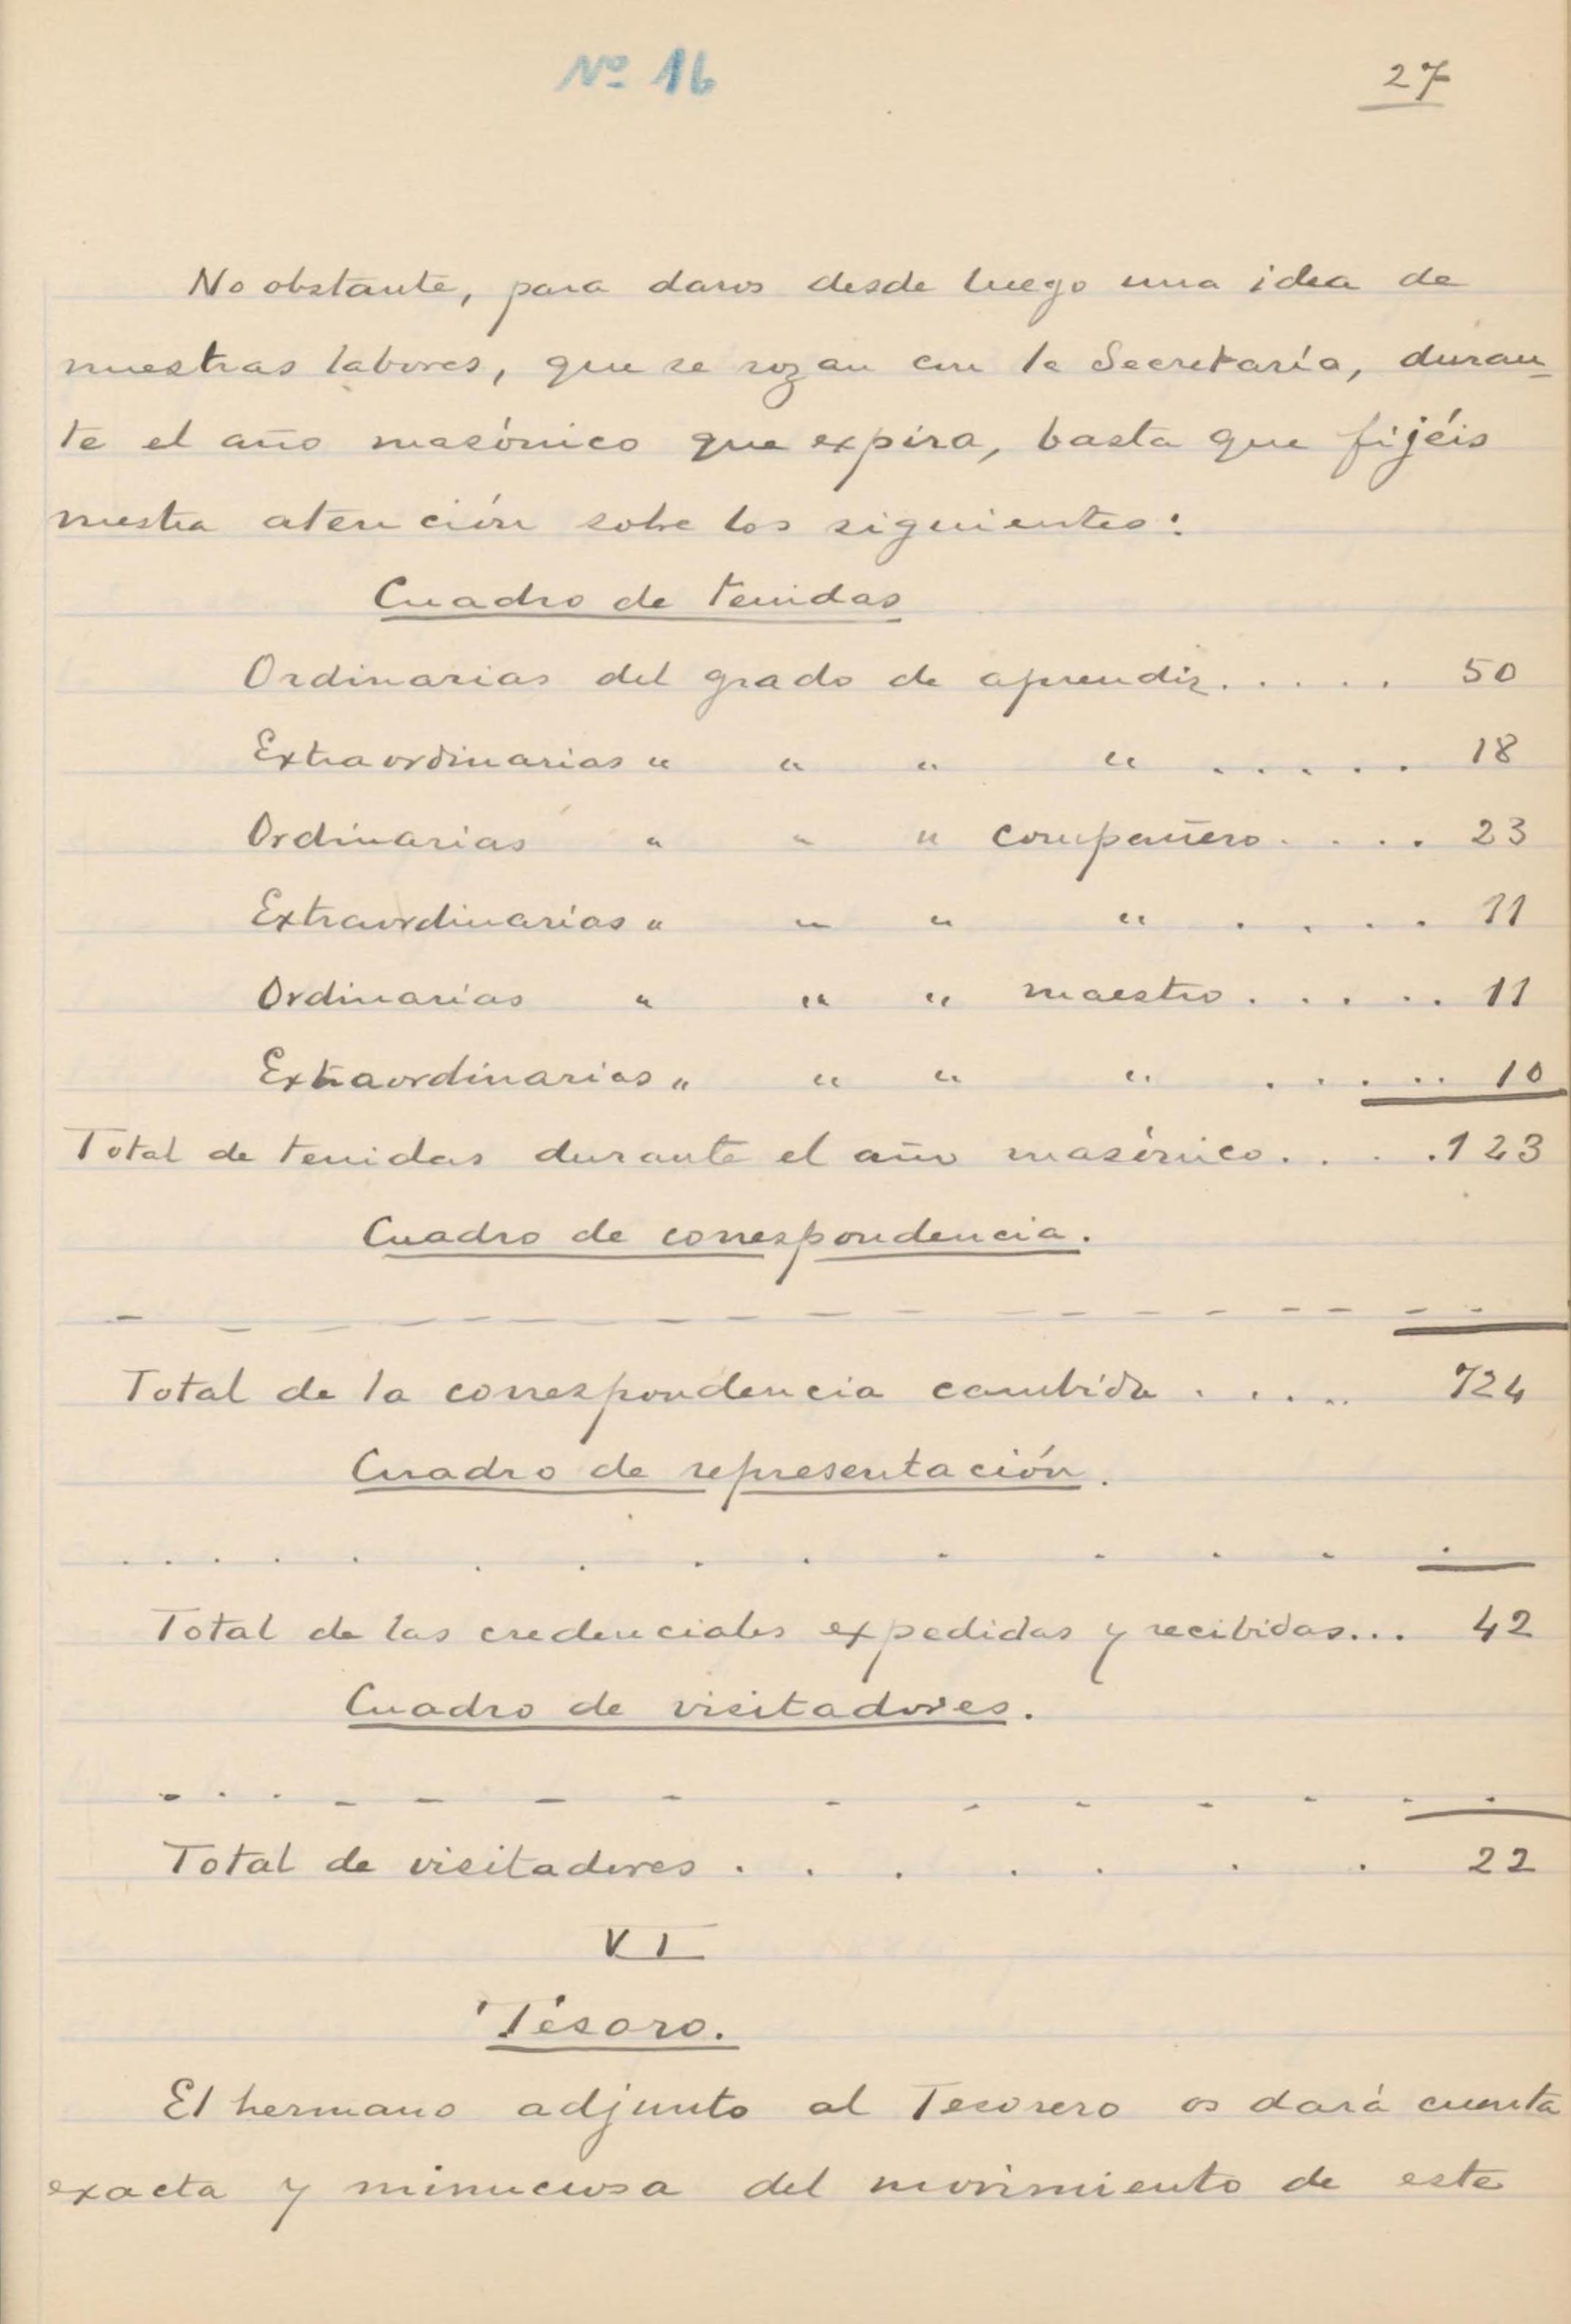 Nº 16
27
No obstante, para daros desde luego una idea de
nuestras labores, que se rozan con la Secretaría, duran-
te el año masónico que expira, basta que fijéis
vuestra atención sobre los siguientes:
Cuadro de tenidas
Ordinarias del grado de aprendiz..... 50
Extraordinarias " " " " ..... 18
Ordinarias " " " compañero.... 23
Extraordinarias " " " " ..... 11
Ordinarias " " " maestro..... 11
Extraordinarias " " " " ..... 10
Total de tenidas durante el año masónico.... 123
Cuadro de correspondencia.
- - - - - - - - - - - - - - - -
Total de la correspondencia cambida ..... 724
Cuadro de representación.
. . . . . . . . . . . . . .
Total de las credenciales expedidas y recibidas... 42
Cuadro de visitadores.
. . . - - - - - - - - - . .
Total de visitadores . . . . . . . 22
VI
Tesoro.
El hermano adjunto al Tesorero os dará cuenta
exacta y minuciosa del movimiento de este